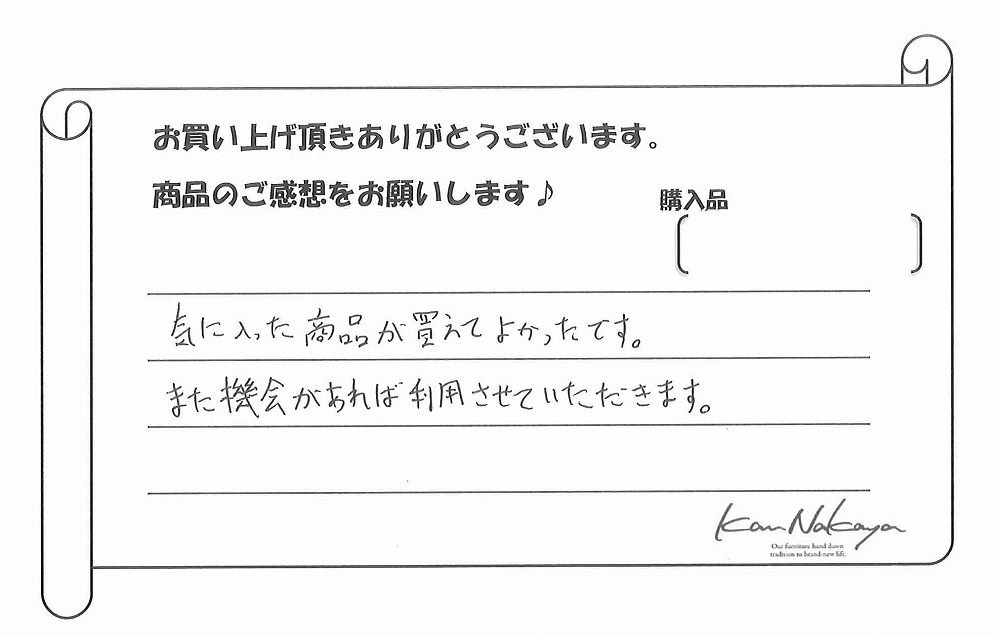 お買い上げ頂きありがとうございます。
商品のご感想をお願いします♪
購入品
気に入った商品が買えてよかったです。
また機会があれば利用させていただきます。
KanNakaya
Our furniture hand down
tradition to brand-new life.